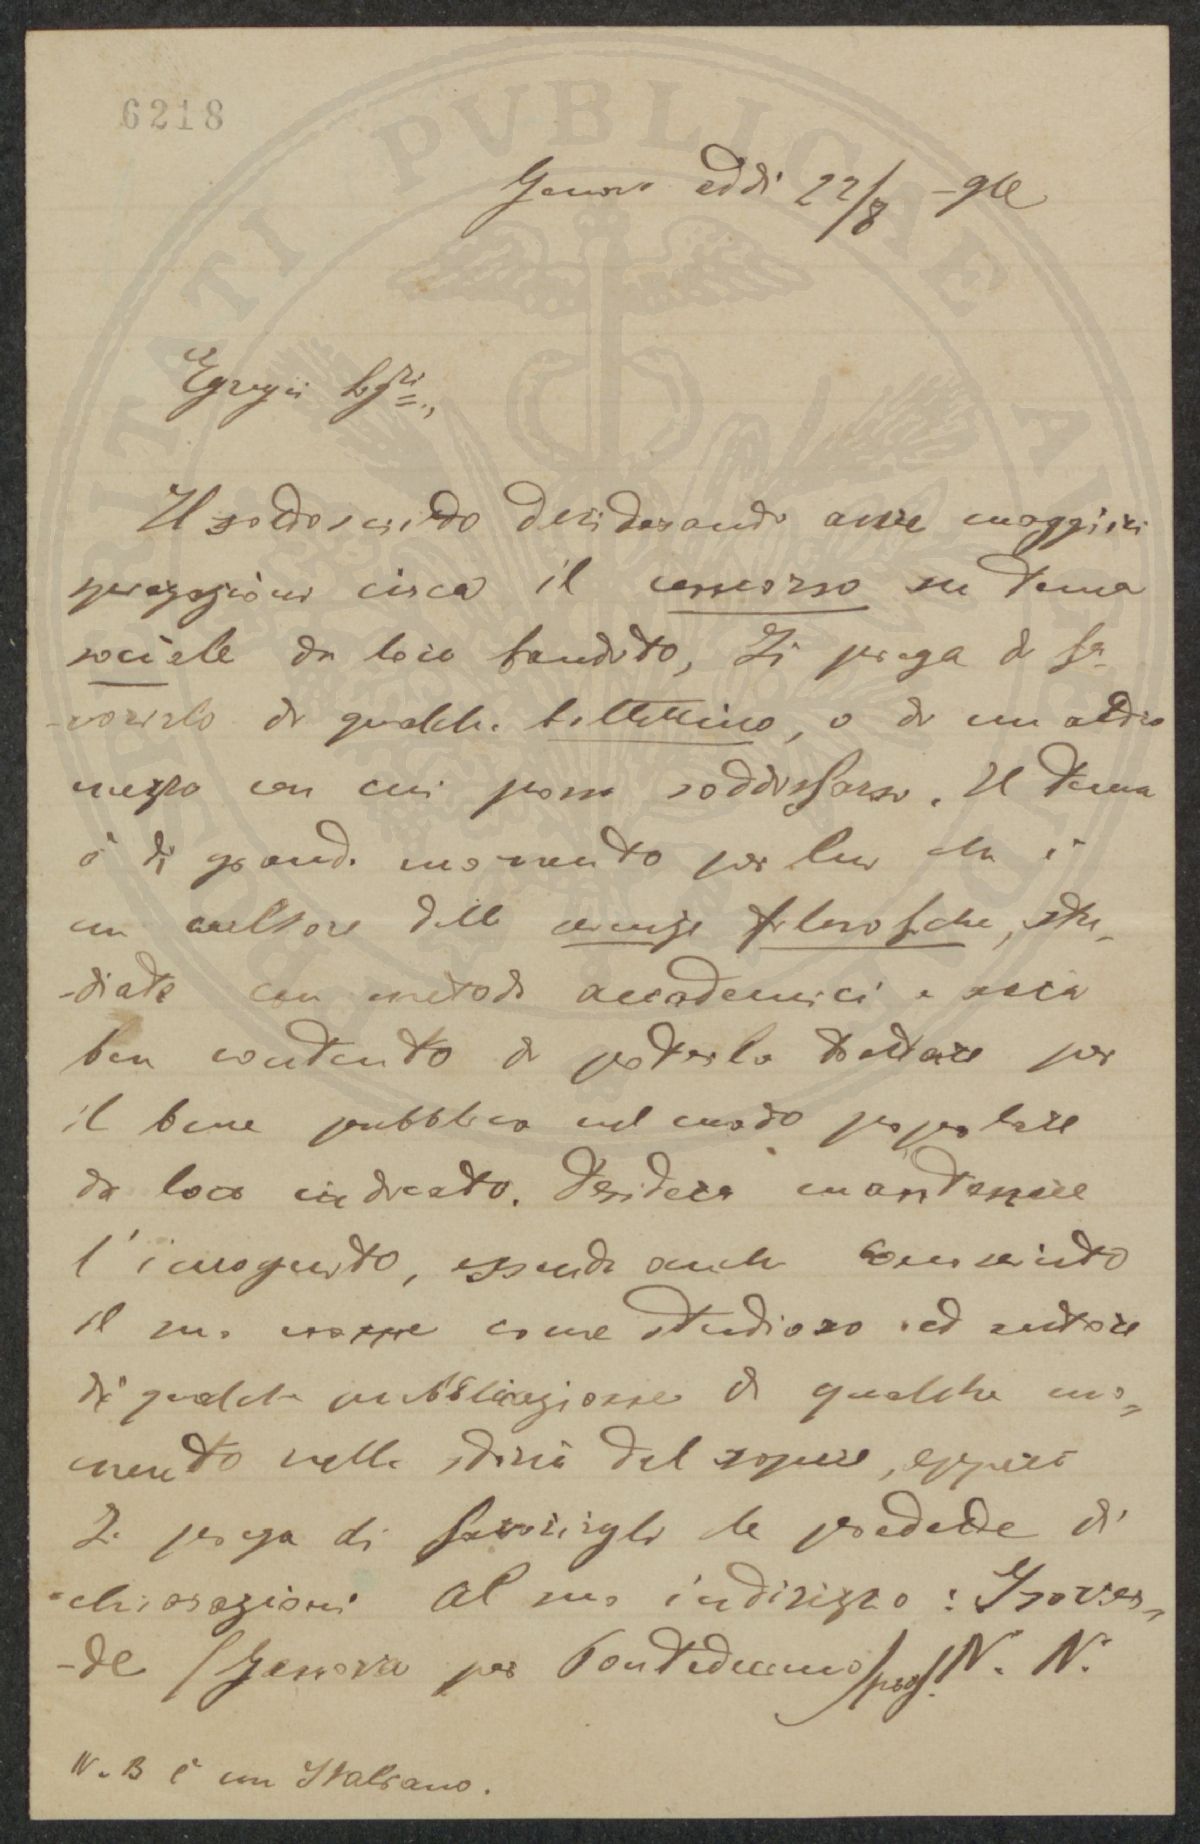 6218
Genova addì 22/8 - 912
Egregii Sigri.,
Il sottoscritto desiderando avere maggiori
spiegazioni circa il concorso su tema
sociale da loro bandito, Li prega di fa-
-vorirlo di qualche bollettino, o di un altro
mezzo con cui possa soddisfarsi. Il tema
è di grande momento per lui che è
un cultore delle scienze filosofiche, stu-
-diate con metodi accademici e
ben contento di poterlo trattare per
il bene pubblico nel modo popolare
da loro indicato. Desidera mantenere
l'incognito, essendo anche conosciuto
il suo nome come studioso ed autore
di qualche pubblicazione di qualche mo-
mento nella storia del sapere, eppure
Li prega di favorirgli le predette di
-chiarazioni al suo indirizzo: Isover-
-de (Genova per Pontedecimo) prof. N. N.
N. B è un Italiano.
PROSPERITATI PVBLICAE AVGENDAE